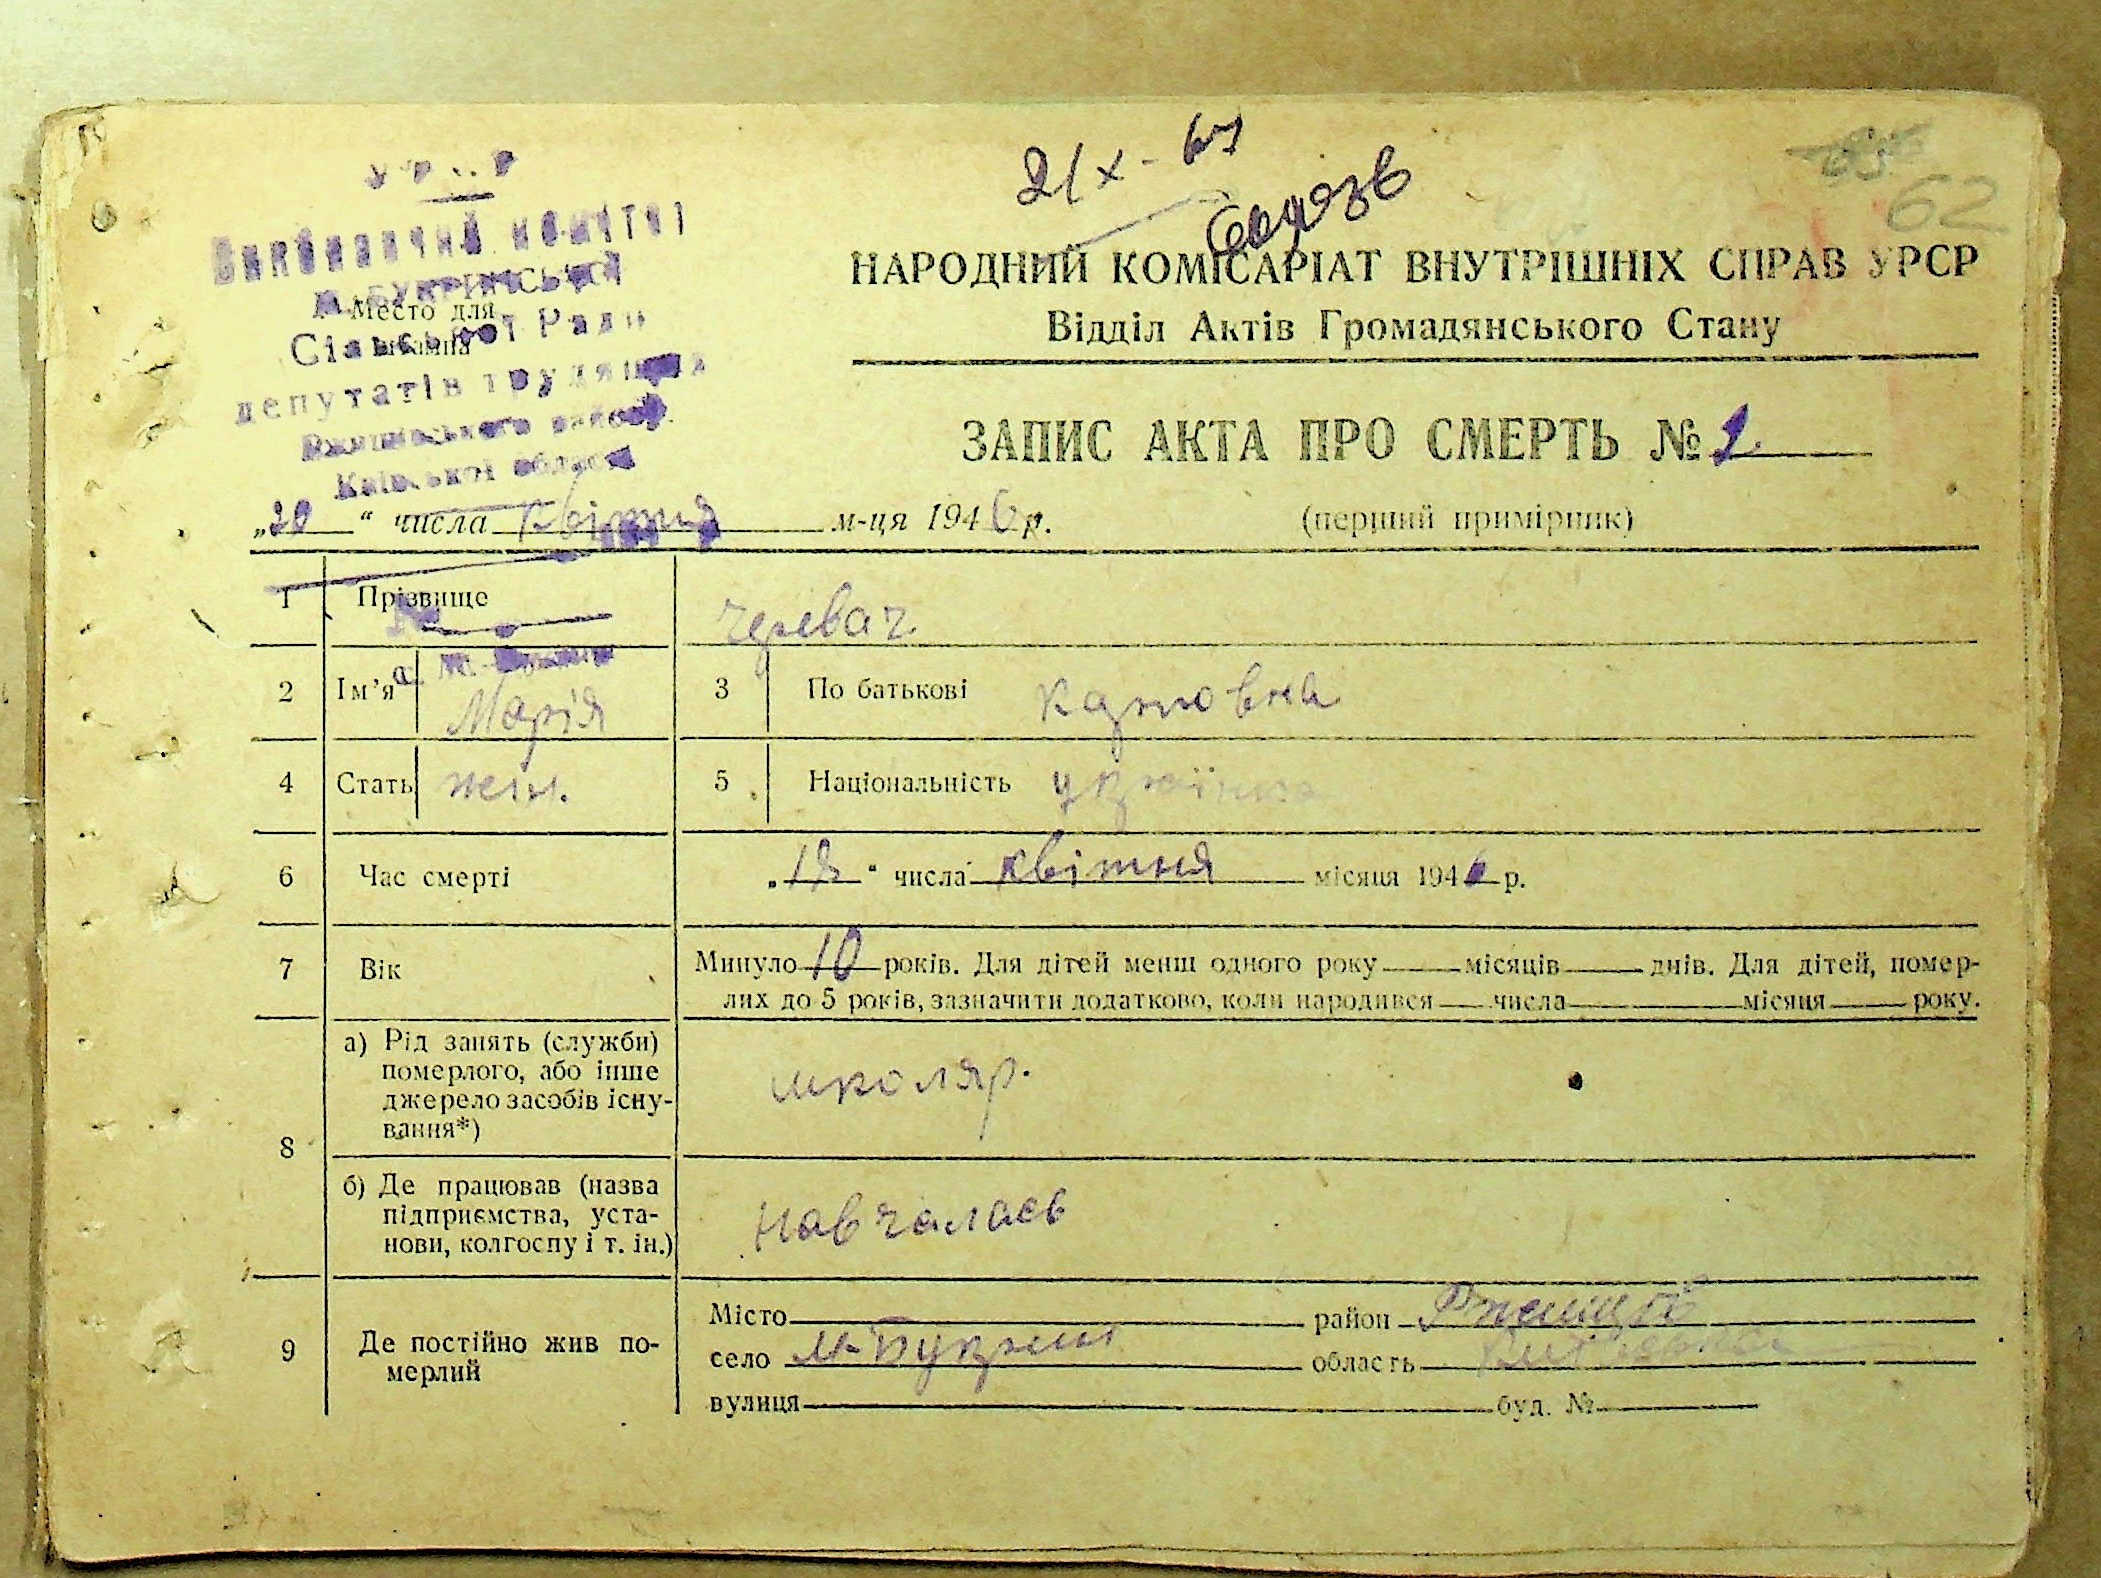 62
21/X-
НАРОДНИЙ КОМІСАРІАТ ВНУТРІШНІХ СПРАВ УРСР
Відділ Актів Громадянського Стану
Виконавчий комітет
М. БУКРИНСЬКОЇ
Место для
штампа
Сільської Ради
депутатів трудящих
Ржищівського району
Київської області
ЗАПИС АКТА ПРО СМЕРТЬ № 2.
„20“ числа квітня м-ця 1946 р. (перший примірник)
1 Прізвище Черевач.
2 Ім’я Марія 3 По батькові
4 Стать жін. 5 Національність українка
6 Час смерті „“ числа квітня місяця 1946 р.
7 Вік Минуло 10 років. Для дітей менш одного року місяців днів. Для дітей, помер-
лих до 5 років, зазначити додатково, коли народився числа місяця року.
8 а) Рід занять (служби)
померлого, або інше
джерело засобів існу-
вання*)
школяр.
б) Де працював (назва
підприємства, уста-
нови, колгоспу і т. ін.)
Навчалась
9 Де постійно жив по-
мерлий
Місто район
село М-Букрин область
вулиця буд. №